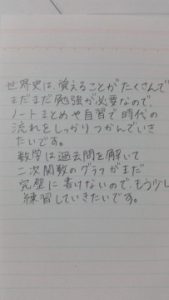 世界史は、覚えることがたくさんで
まだまだ勉強が必要なので、
ノートまとめや自習で時代の
流れをしっかりつかんでいき
たいです。
数学は過去問を解いて
二次関数のグラフがまだ
完璧に書けないので、もう少し
練習していきたいです。